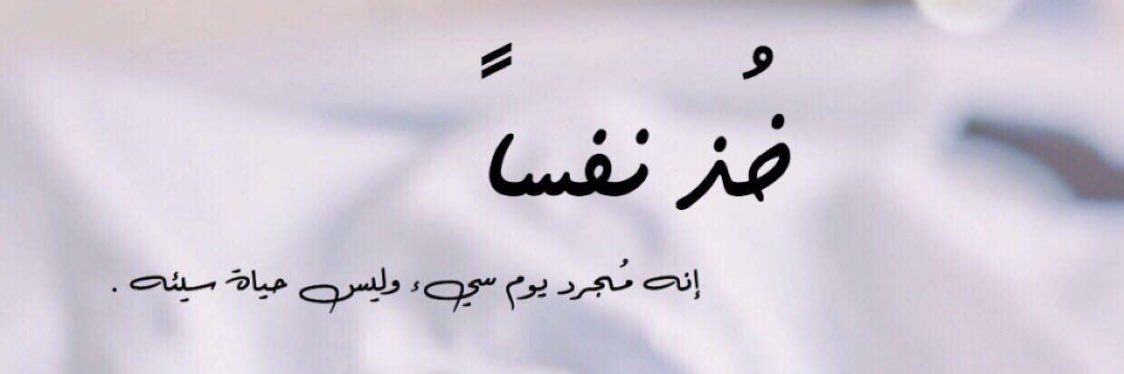 خُذ نفساً
إنه مُجرد يوم سيء وليس حياة سيئه .